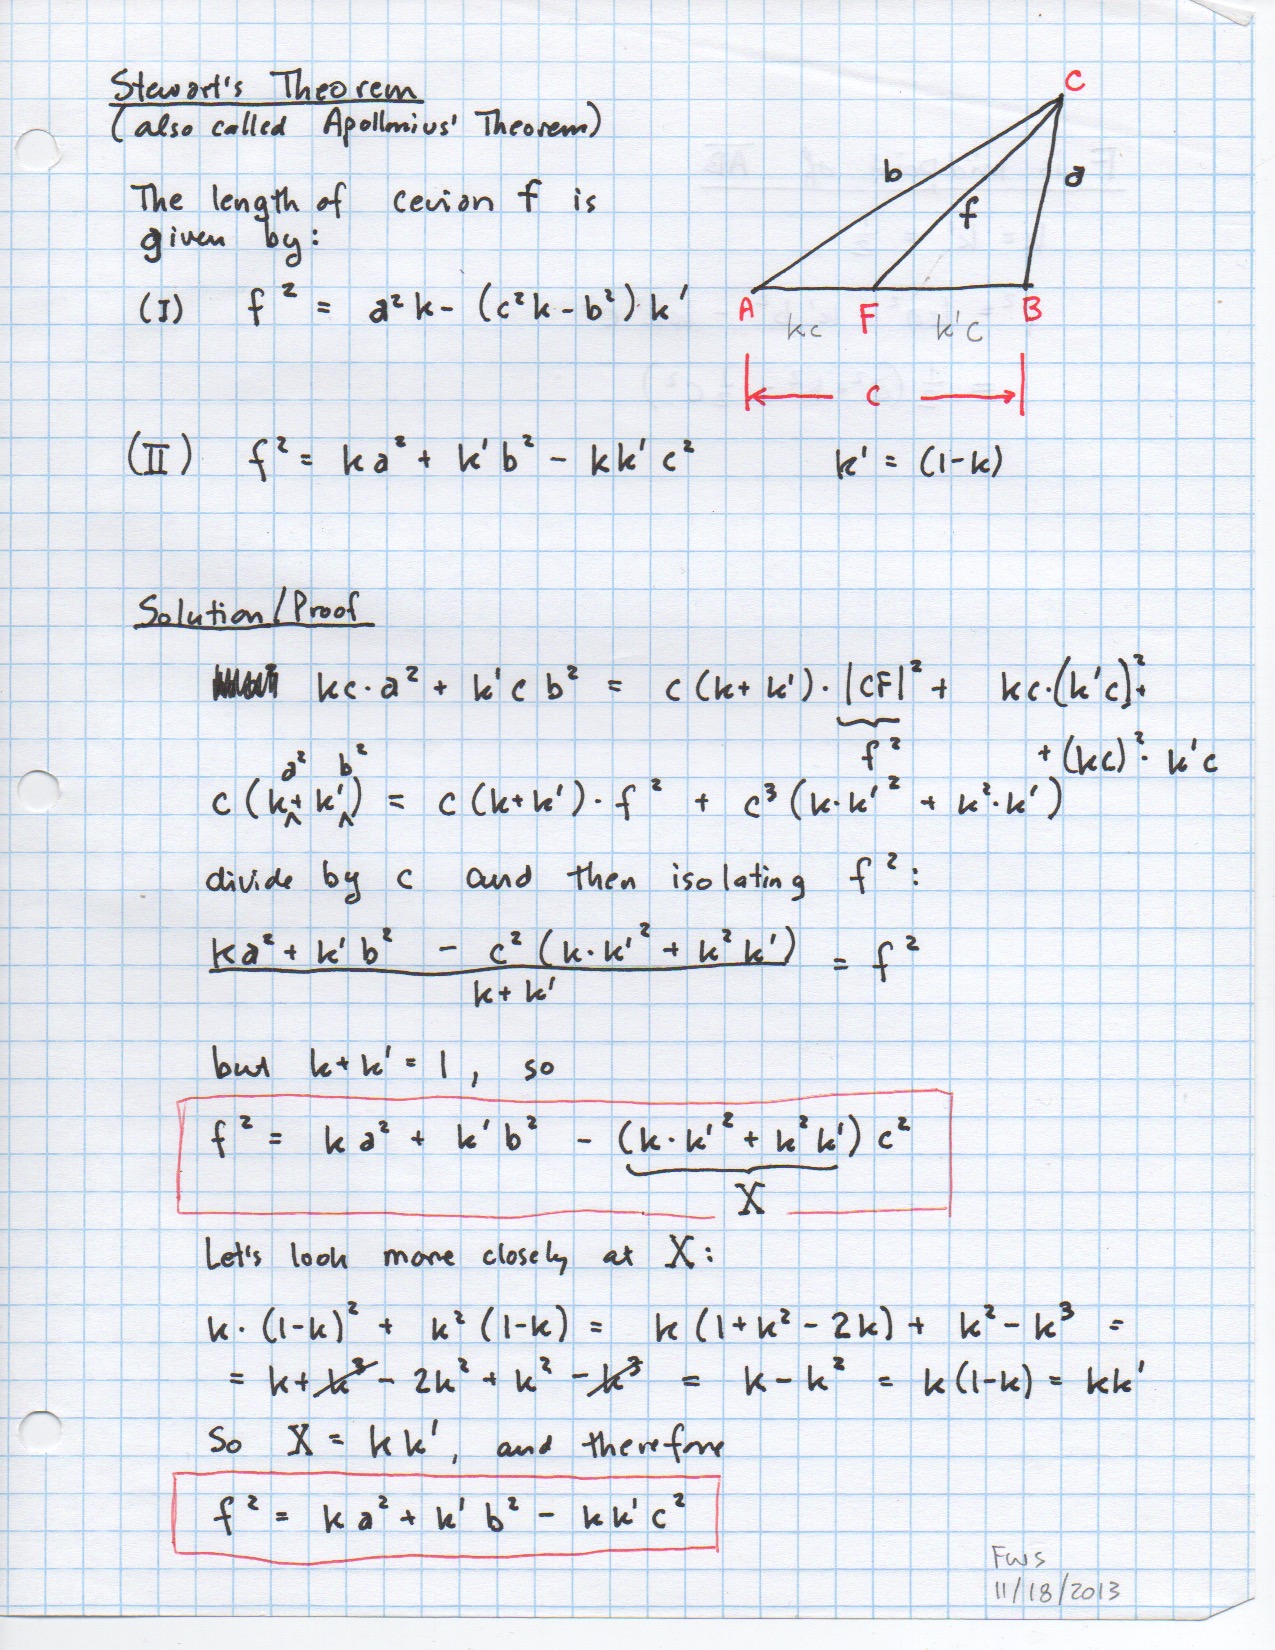 Stewart's Theorem
(also called Apollonius' Theorem)
The length of cevian f is
given by:
(I) f² = a²k - (c²k - b²) k'
C
b
a
f
A
F
B
kc
k'c
c
(II) f² = ka² + k'b² - kk'c²
k' = (1-k)
Solution/Proof
kc·a² + k'c b² = c(k+k')·|CF|² + kc·(k'c)² +
f²
+ (kc)²· k'c
a² b²
c(k + k') = c(k+k')·f² + c³(k·k'² + k²·k')
divide by c and then isolating f²:
ka² + k'b² - c²(k·k'² + k²k')
= f²
k+k'
but k+k' = 1, so
f² = ka² + k'b² - (k·k'² + k²k') c²
X
Let's look more closely at X:
k·(1-k)² + k²(1-k) = k(1+k²-2k) + k²-k³ =
= k + k³ - 2k² + k² - k³ = k - k² = k(1-k) = kk'
So X = kk', and therefore
f² = ka² + k'b² - kk'c²
FWS
11/18/2013